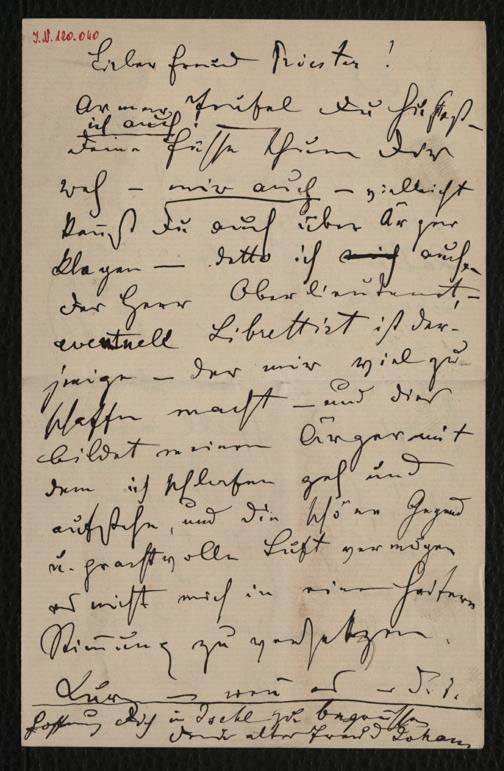 I.N. 120.040
Lieber Freund Priester!
Armer Teufel du hustest –
ich auch!
Deine Füsse thun dir
weh – mir auch – vielleicht
kannst du auch über Ärger
klagen – detto ich auch –
der Herr Oberlieutenant, –
eventuell Librettist ist der-
jenige – der mir viel zu
schaffen macht – und dies
bildet meinen Ärger mit
dem ich schlafen geh und
aufstehe, und die schöne Gegend
u. prachtvolle Luft vermögen
es nicht mich in eine heitere
Stimmung zu versetzen.
– wenn es –
Hoffnung dich in Ischl zu begrüssen
Dein alter Freund Johann